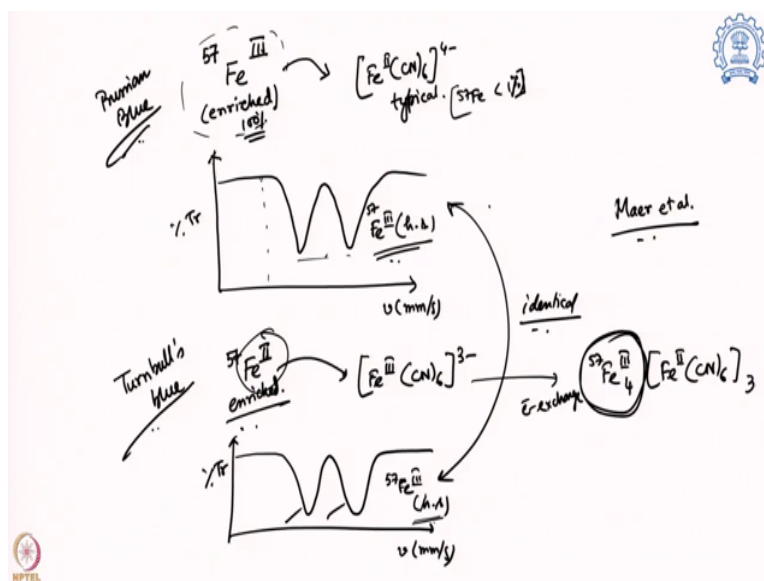 Prussian Blue
⁵⁷Fe^III
(enriched)
100%
[Fe^II(CN)₆]⁴⁻
typical. [⁵⁷Fe < 1%]
% Tr
⁵⁷Fe^III (h.s)
υ(mm/s)
Maer et al.
identical
Turnbull's blue
⁵⁷Fe^II
enriched.
[Fe^III(CN)₆]³⁻
e⁻exchange
⁵⁷Fe^III₄[Fe^II(CN)₆]₃
% Tr
⁵⁷Fe^III
(h.s)
υ(mm/s)
NPTEL